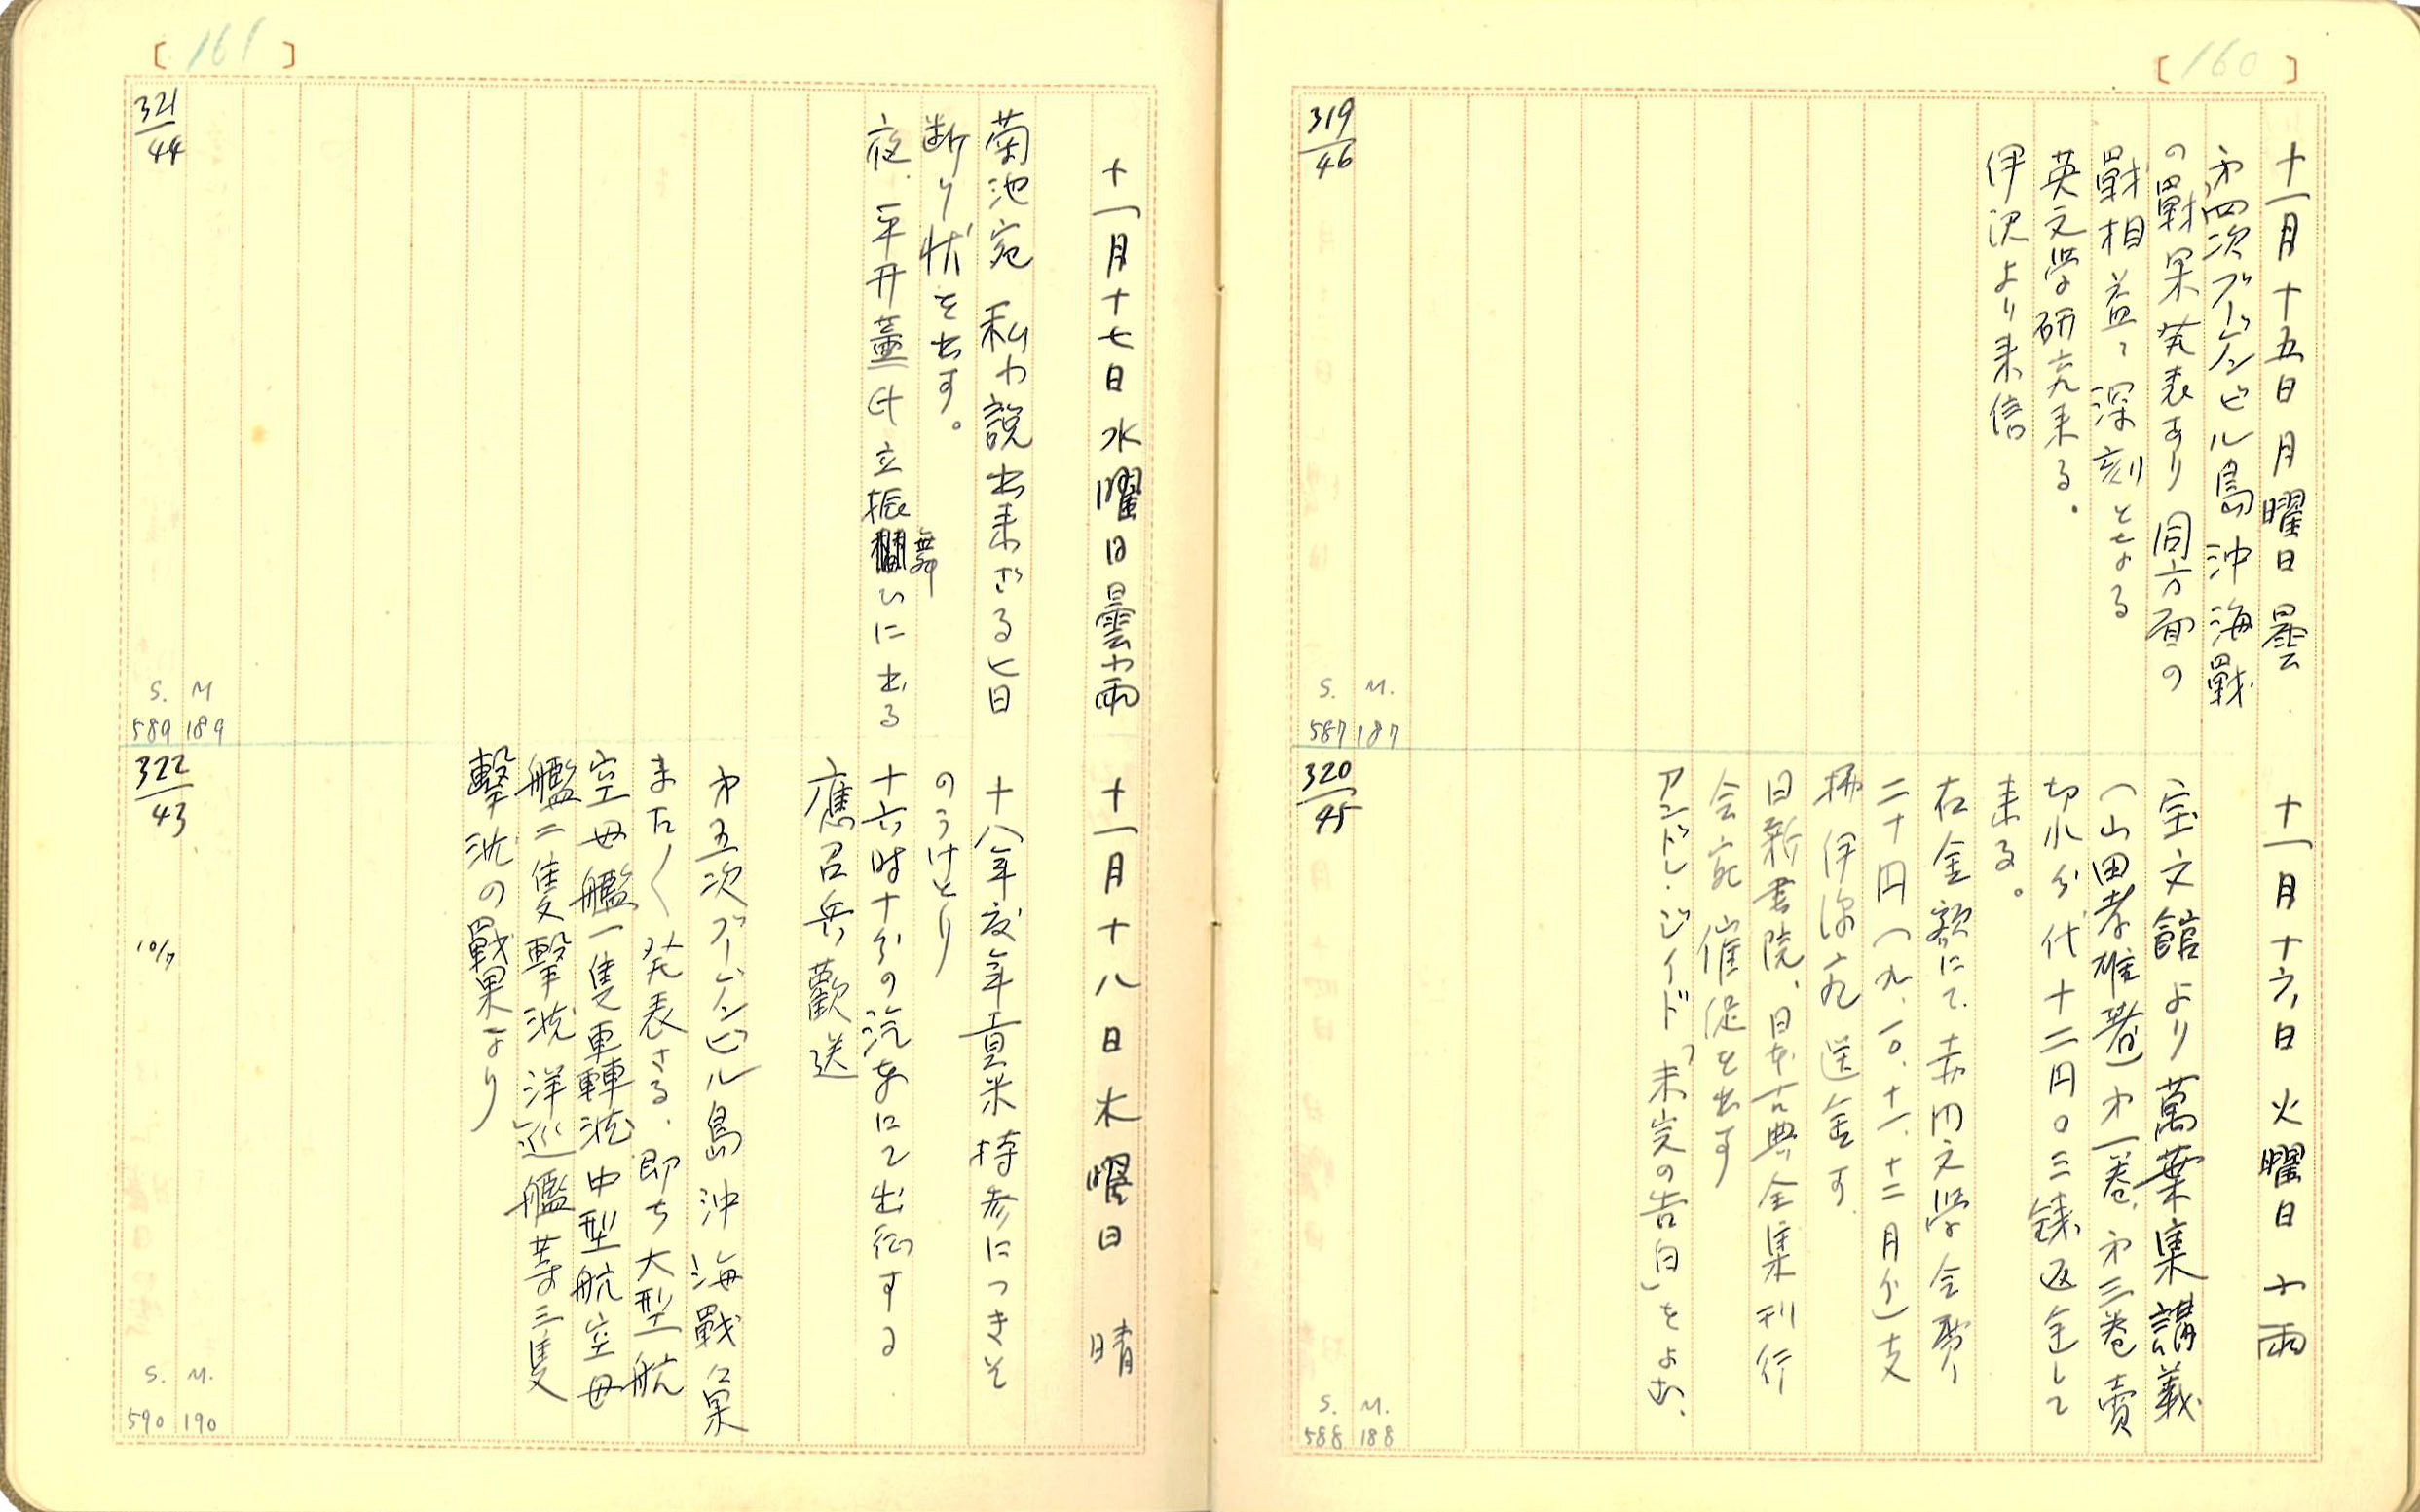 [160]
十一月十五日 月曜日 曇
第四次ブーゲンビル島沖海戰
の戰果発表あり 同方面の
戰相益々深刻となる
英文学研究来る。
伊沢より来信
319/46
S. M.
587 187
十一月十六日 火曜日 小雨
宝文館より萬葉集講義
(山田孝雄著)第一巻、第三巻賣
切れ分代十二円〇三錢返金して
来る。
右金額にて、赤門文学会費
二十円(九、一〇、十一、十二月分)支
拂 伊 宛送金す
日新書院、日本古典全集刊行
会宛 催促を出す
アンドレ・ジイド「未完の告白」をよむ、
320/45
S. M.
588 188
[161]
十一月十七日 水曜日 曇小雨
菊池宛 私小説出来ざる旨
断り状を出す。
夜、平井 氏立振舞ひに出る
321/44
S. M
589 189
十一月十八日 木曜日 晴
十八年度年貢米持参につきそ
のうけとり
十六時十分の汽車にて出征する
應召兵歡送
第五次ブーゲンビル島沖海戰の戰果
またく発表さる、即ち大型航
空母艦一隻轟沈中型航空母
艦二隻擊沈 洋巡艦等三隻
擊沈の戰果なり
322/43
10/7
S. M.
590 190